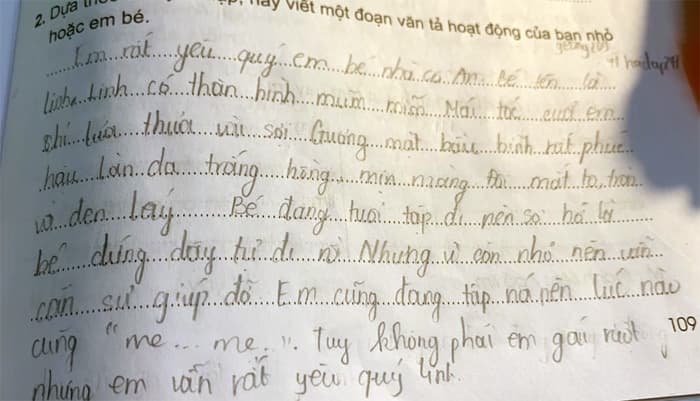 2. Dựa hãy viết một đoạn văn tả hoạt động của bạn nhỏ
hoặc em bé.
Em rất yêu quý em bé nhà cô An. Bé tên là
Linh. Linh có thân hình mũm mĩm Mái tóc của em
chỉ lưa thưa vài sợi Gương mặt bầu bĩnh rất phúc
hậu Làn da trắng hồng, mịn màng Đôi mắt to, tròn
và đen láy Bé đang tuổi tập đi nên sở là
bé đứng dậy tự đi Nhưng vì còn nhỏ nên vẫn
cần sự giúp đỡ Em cũng đang tập nên lúc nào
cũng "me... me.." Tuy không phải em gái ruột
109
nhưng em vẫn rất yêu quý Linh.